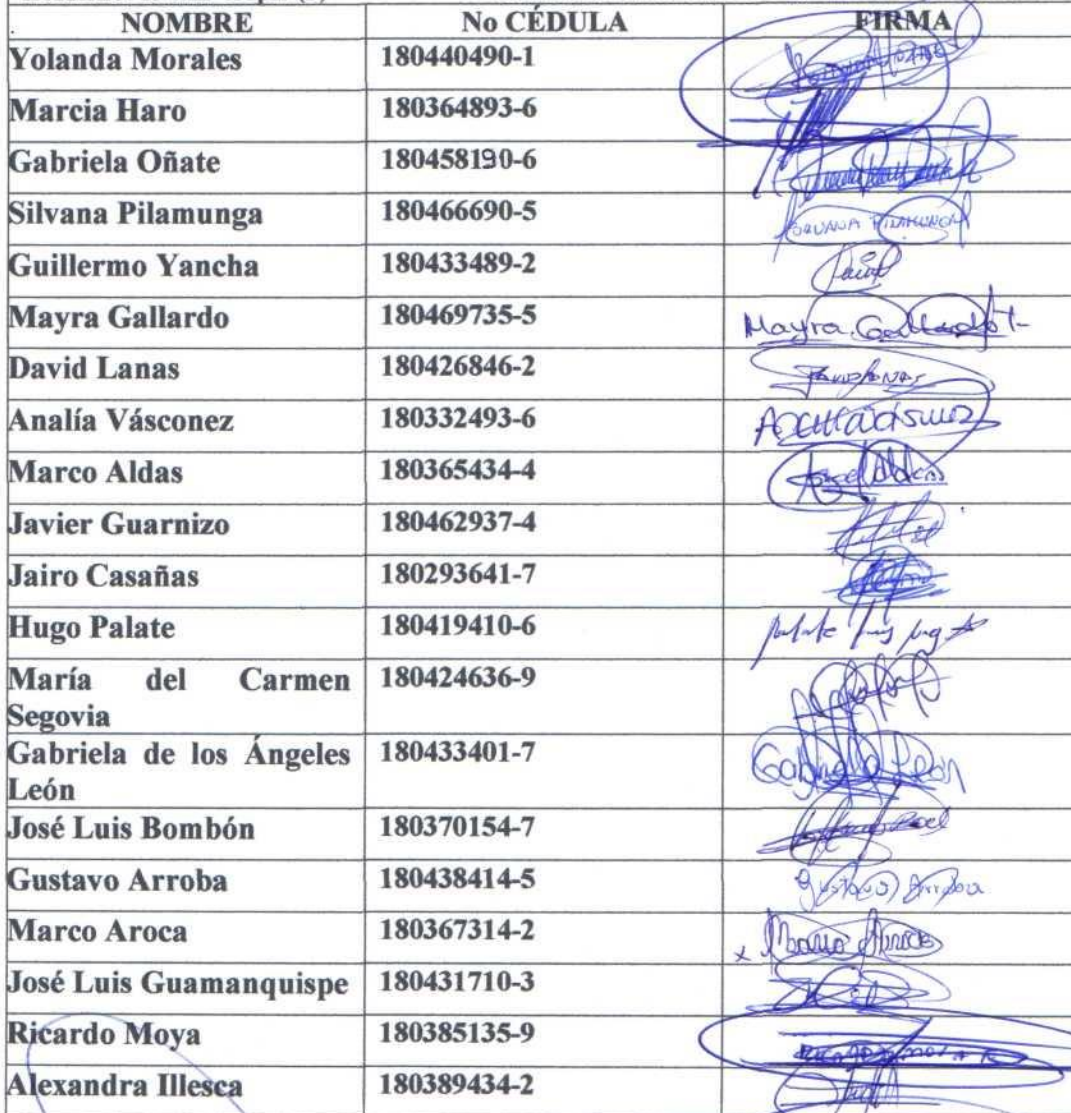 NOMBRE No CÉDULA FIRMA
Yolanda Morales 180440490-1
Marcia Haro 180364893-6
Gabriela Oñate 180458190-6
Silvana Pilamunga 180466690-5 SILVANA PILAMUNGA
Guillermo Yancha 180433489-2
Mayra Gallardo 180469735-5 Mayra Gallardo T-
David Lanas 180426846-2
Analía Vásconez 180332493-6
Marco Aldas 180365434-4
Javier Guarnizo 180462937-4
Jairo Casañas 180293641-7
Hugo Palate 180419410-6
María del Carmen 180424636-9
Segovia
Gabriela de los Ángeles 180433401-7 Gabriela León
León
José Luis Bombón 180370154-7
Gustavo Arroba 180438414-5 Gustavo Arroba
Marco Aroca 180367314-2
José Luis Guamanquispe 180431710-3
Ricardo Moya 180385135-9
Alexandra Illesca 180389434-2